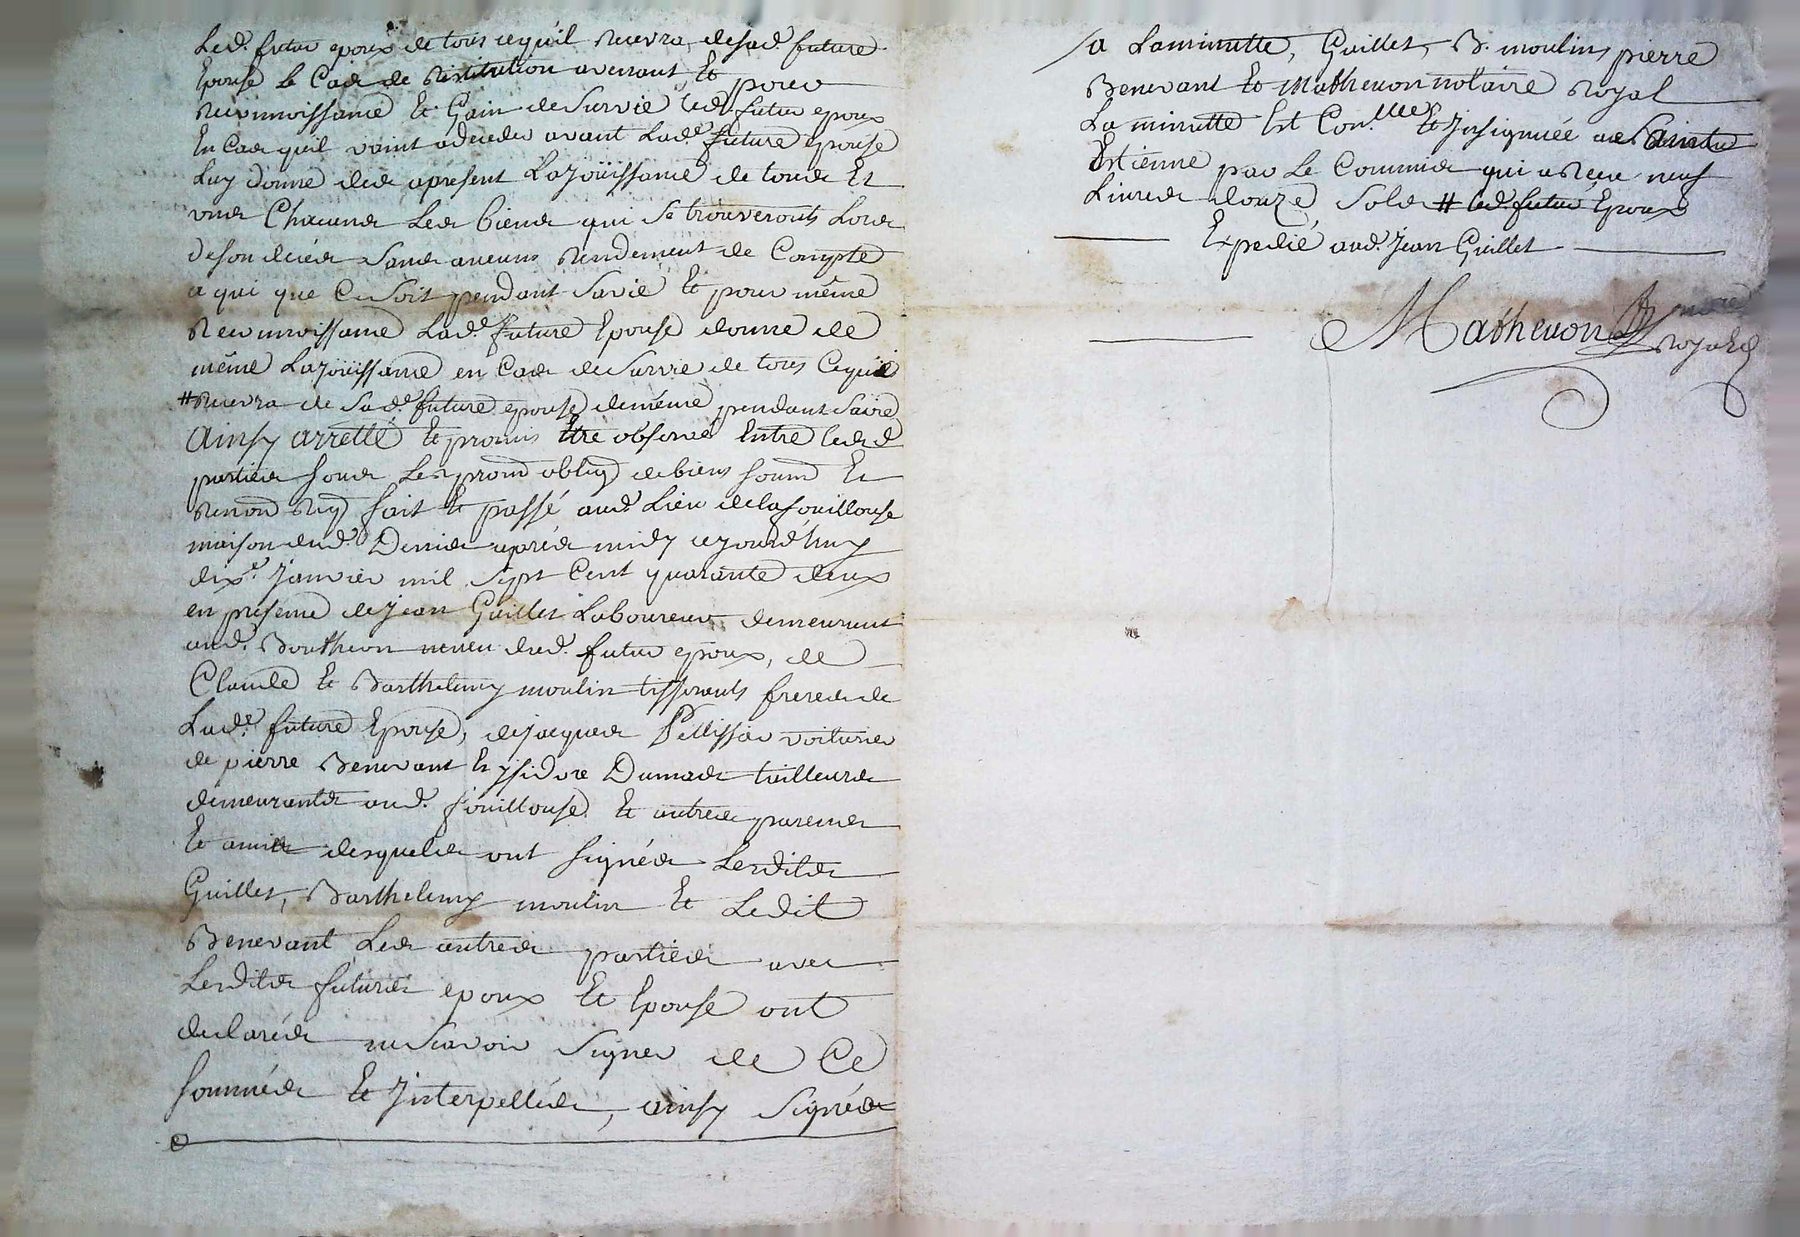 Led. futur epoux de tous cequil recevra desad. future
Epouse le Cas de Restitution avenant Et pour
reconnoissance Et Gain de Survie led. futur epoux
En Cas quil vaint adceder avant Lad.e future epouse
Luy donne des apresent Lajoüissance de tous Et
uns Chacuns Les biens qui Se trouveronts Lors
deson deces Sans aucuns Rendement de Compte
a qui que Ce Soit pendant Savie Et pour même
Reconnoissance Lad.e future Epouse donne de
même Lajoüissance en Cas de Survie de tous Cequil
# recevra de Sad.e future epouse demême pendant Savie
Ainsy arretté Et promis Etre observé Entre lesd
parties sous Les prom oblig de biens soum Et
Renon Req fait Et passé aud. Lieu de lafouillouse
maison dud. Denis après midy cejourd'huy
dix.e Janvier mil Sept Cent quarante deux
en presence de Jean Guillet Laboureur demeurant
aud. Bouthion neveu dud. futur epoux, de
Claude Et Barthelemy moulin tisserants freres de
Lad.e future Epouse, de jacques Pellissier voiturier
de pierre Benevant Et ysidore Dumas tailleurs
demeurants aud. fouillouse Et autres parents
Et amis desquels ont signés Lesdits
Guillet, Barthelemy moulin Et Ledit
Benevant Les autres parties avec
Lesdits futurs epoux Et Epouse ont
declarés ne Scavoir Signer de Ce
sommés Et Interpellés, ainsy Signés
a Laminutte, Guillet, B. moulin, pierre
Benevant Et Mathevon notaire Royal
La minutte Est Con.llée Et Insignuée a Saint
Estienne par Le Commis qui a Receu neuf
Livres douze Sols # led. futur Epoux
Expedié aud. Jean Guillet
Mathevon
Royal